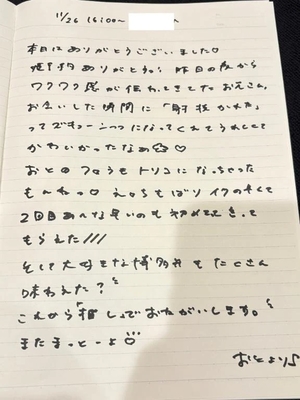 11/26 16:00〜
本日はありがとうございました♡
ありがとう。昨日の夜から
ワクワク感が伝わってきてたお兄さん。
お会いした瞬間に「射抜かれた」
ってズキューンってなってくれてうれしくて
かわいかったなぁ♡
おとのフェラもトリコになっちゃった
もんねっ♡
2回目あんな早いのも初めてって言って
もらえた///
そして大好きな博多弁もたくさん
味わえた?
これから推しでおねがいします。
またまっとーよ♡
おとより♪